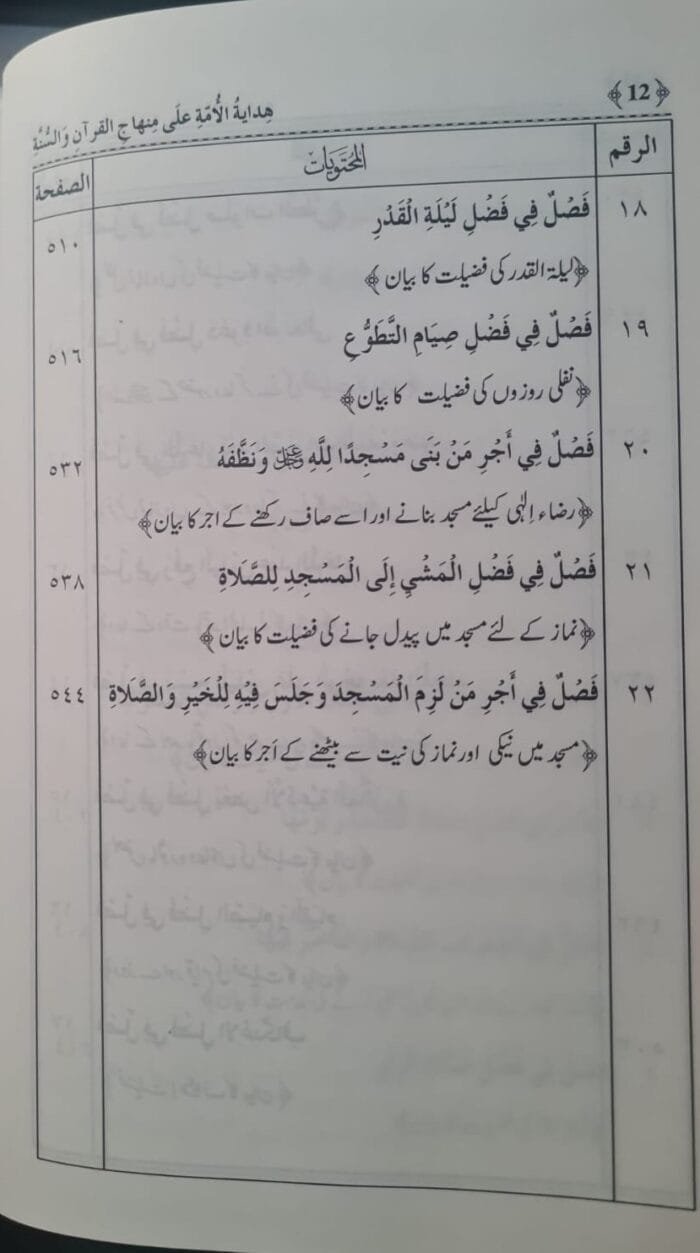 ﴿12﴾ هِدايةُ الْأُمّةِ علَى مِنهاجِ القرآنِ وَالسُّنَّةِ
الرقم المحتويات الصفحة
١٨ فَصْلٌ فِي فَضْلِ لَيْلَةِ الْقَدْرِ ٥١٠
﴿لیلۃ القدر کی فضیلت کا بیان﴾
١٩ فَصْلٌ فِي فَضْلِ صِيَامِ التَّطَوُّعِ ٥١٦
﴿نفلی روزوں کی فضیلت کا بیان﴾
٢٠ فَصْلٌ فِي أَجْرِ مَنْ بَنَى مَسْجِدًا لِلَّهِ عزوجل وَنَظَّفَهُ ٥٣٢
﴿رضاء اِلٰہی کیلئے مسجد بنانے اور اسے صاف رکھنے کے اجر کا بیان﴾
٢١ فَصْلٌ فِي فَضْلِ الْمَشْيِ إِلَى الْمَسْجِدِ لِلصَّلَاةِ ٥٣٨
﴿نماز کے لئے مسجد میں پیدل جانے کی فضیلت کا بیان﴾
٢٢ فَصْلٌ فِي أَجْرِ مَنْ لَزِمَ الْمَسْجِدَ وَجَلَسَ فِيْهِ لِلْخَيْرِ وَالصَّلَاةِ ٥٤٤
﴿مسجد میں نیکی اور نماز کی نیت سے بیٹھنے کے اَجر کا بیان﴾